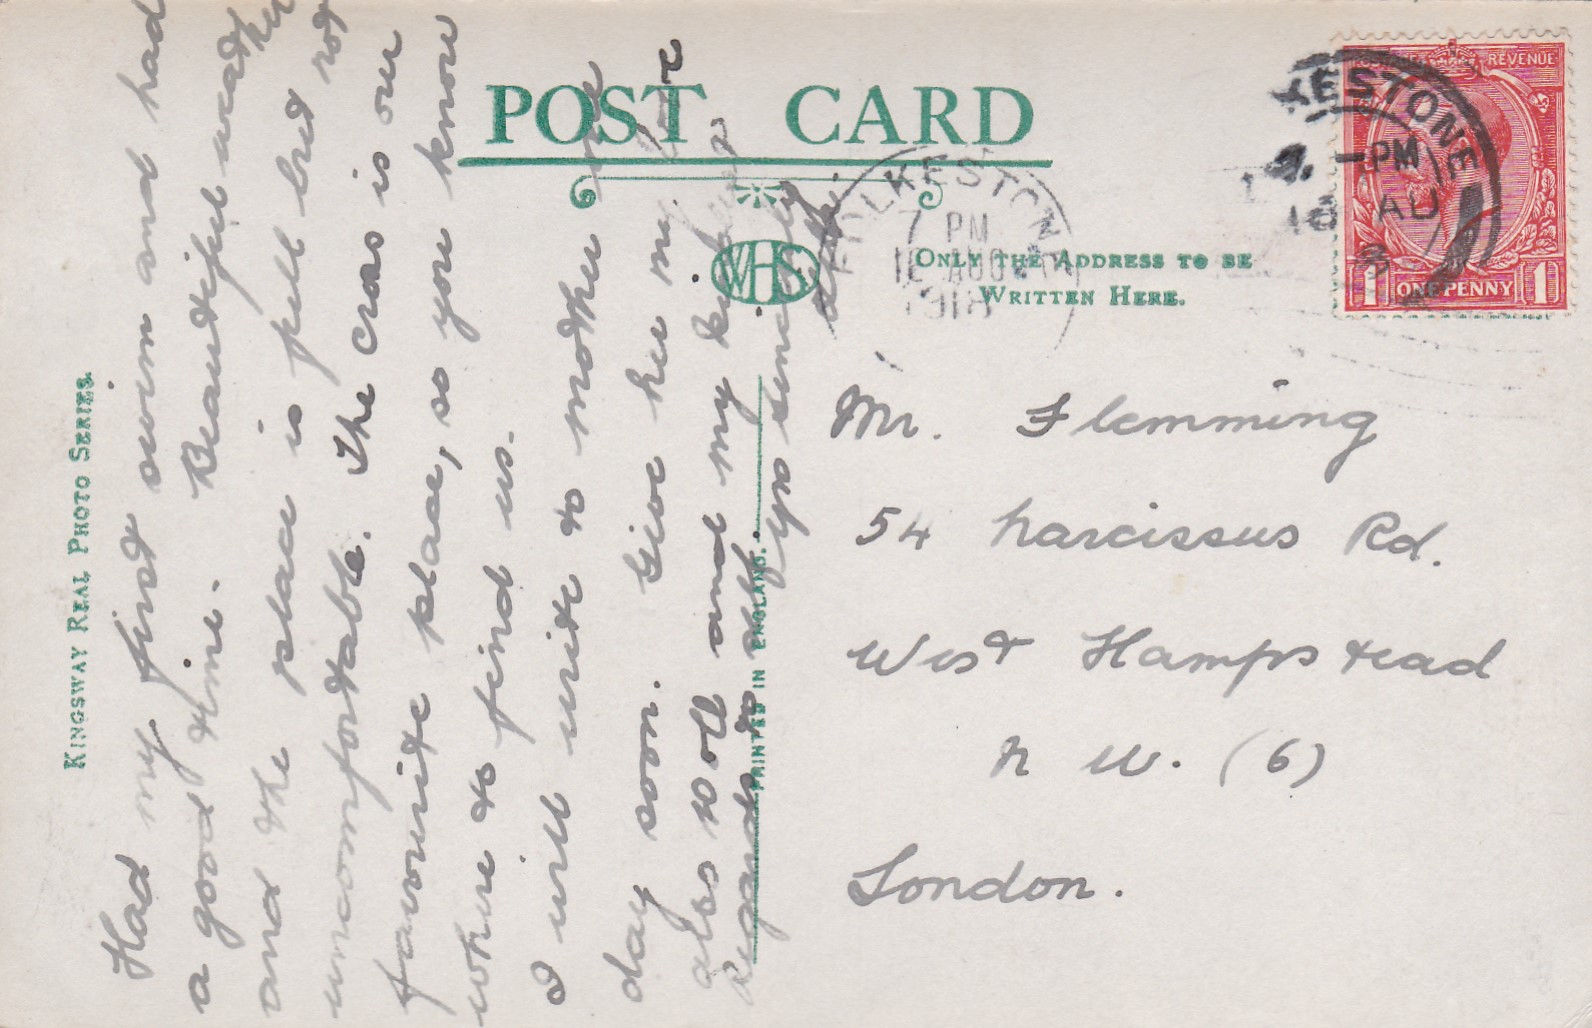 POST CARD
WHS
ONLY THE ADDRESS TO BE
WRITTEN HERE.
KINGSWAY REAL PHOTO SERIES.
PRINTED IN ENGLAND.
REVENUE
1 ONE PENNY 1
KESTONE
PM
AU
FOLKESTONE
7 PM
AUG
1918
Mr. Flemming
54 Narcissus Rd.
West Hampstead
N W. (6)
London.
Had my first swim and had
a good time. Beautiful weather
and the place is full but not
uncomfortable. The cross is our
favourite place, so you know
where to find us.
I will write to mother one
day soon. Give her my love
also Noll and my kindest
Regards to all. Yrs sincerely